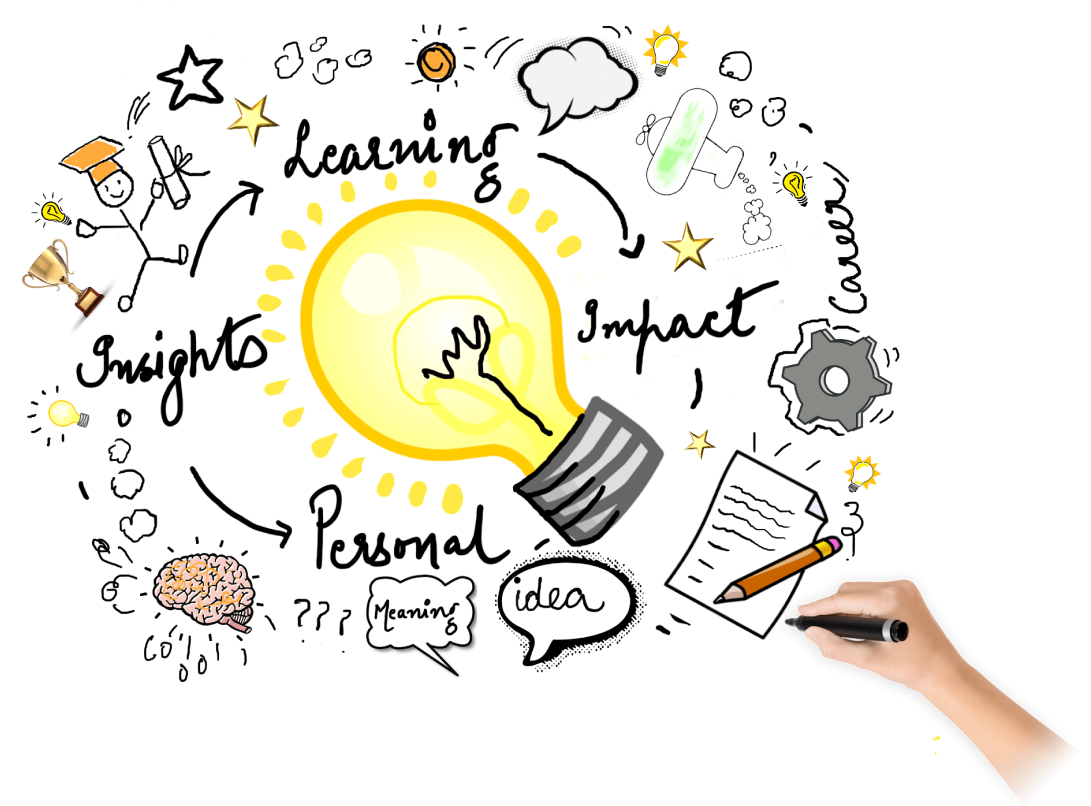 Learning
Career
Impact
Insights
Personal
???
Meaning
idea